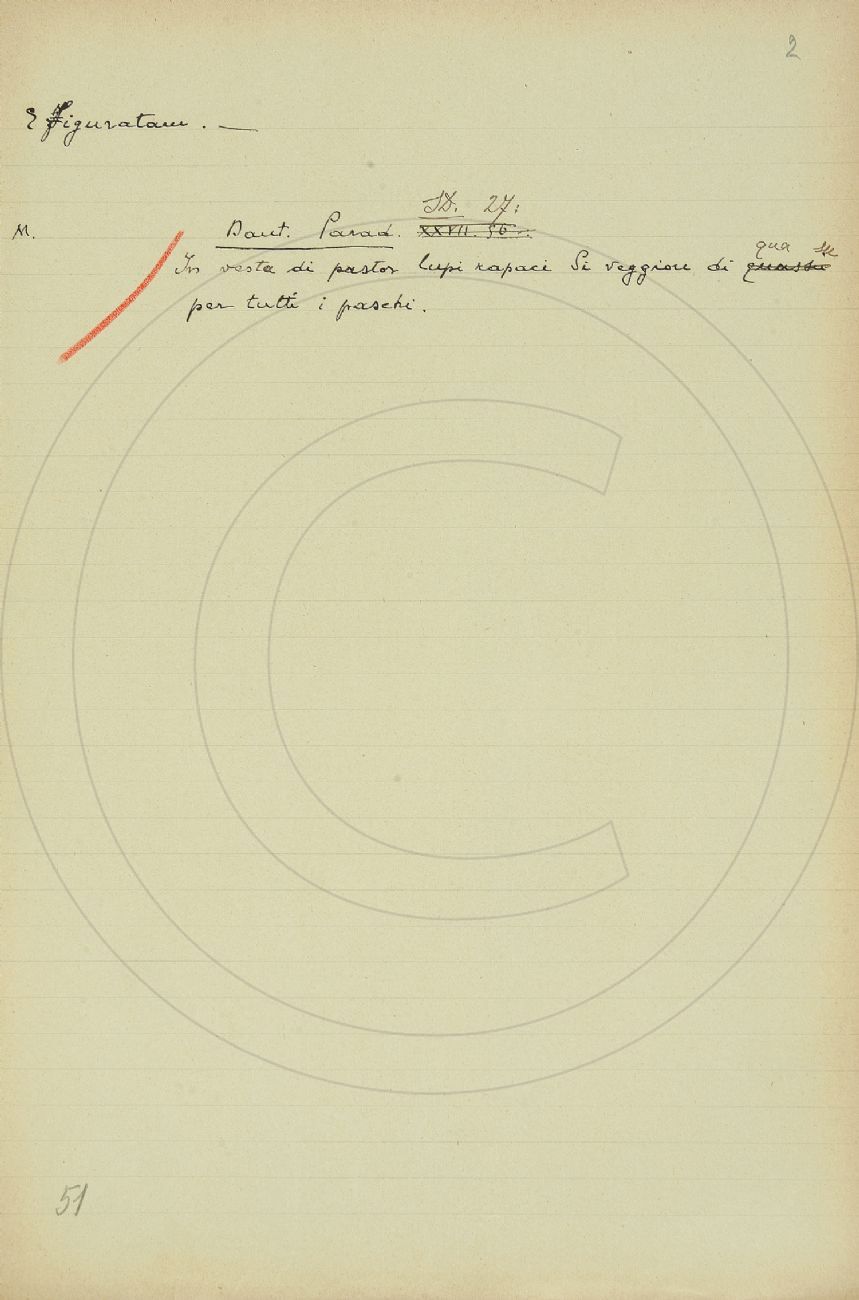 2
E Figuratam. —
ID. 27:
M. Dant. Parad. XXVII. 56.
qua su
In vesta di pastor lupi rapaci Si veggion di quassu
per tutti i paschi.
51